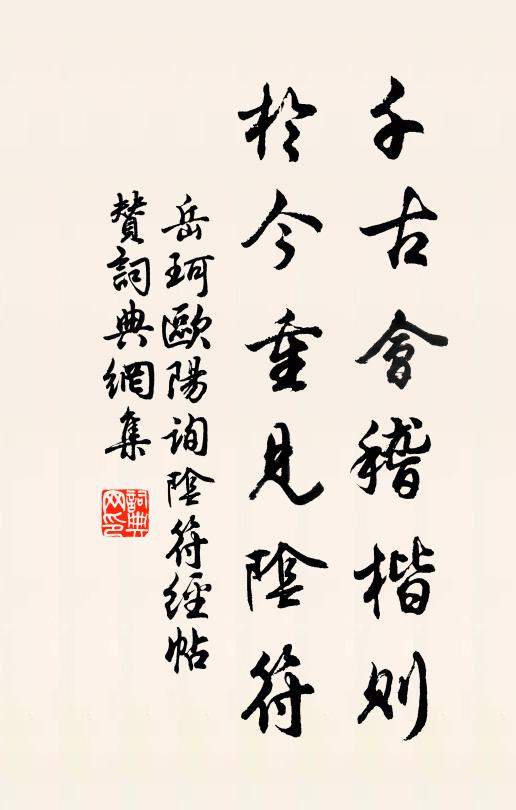 千古會稽楷則
於今重見陰符
岳珂歐陽詢陰符經帖
贊詞典網集
詞典網印